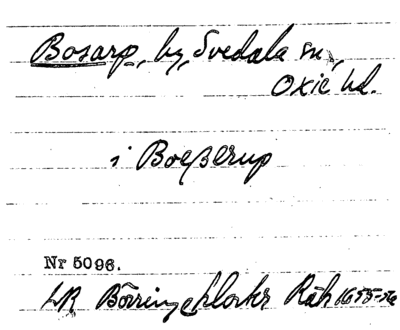 Bosarp, by, Svedala sn,
Oxie hd.
i Boeßerup
Nr 5096.
LR Börringeklosters Räk 1655-56